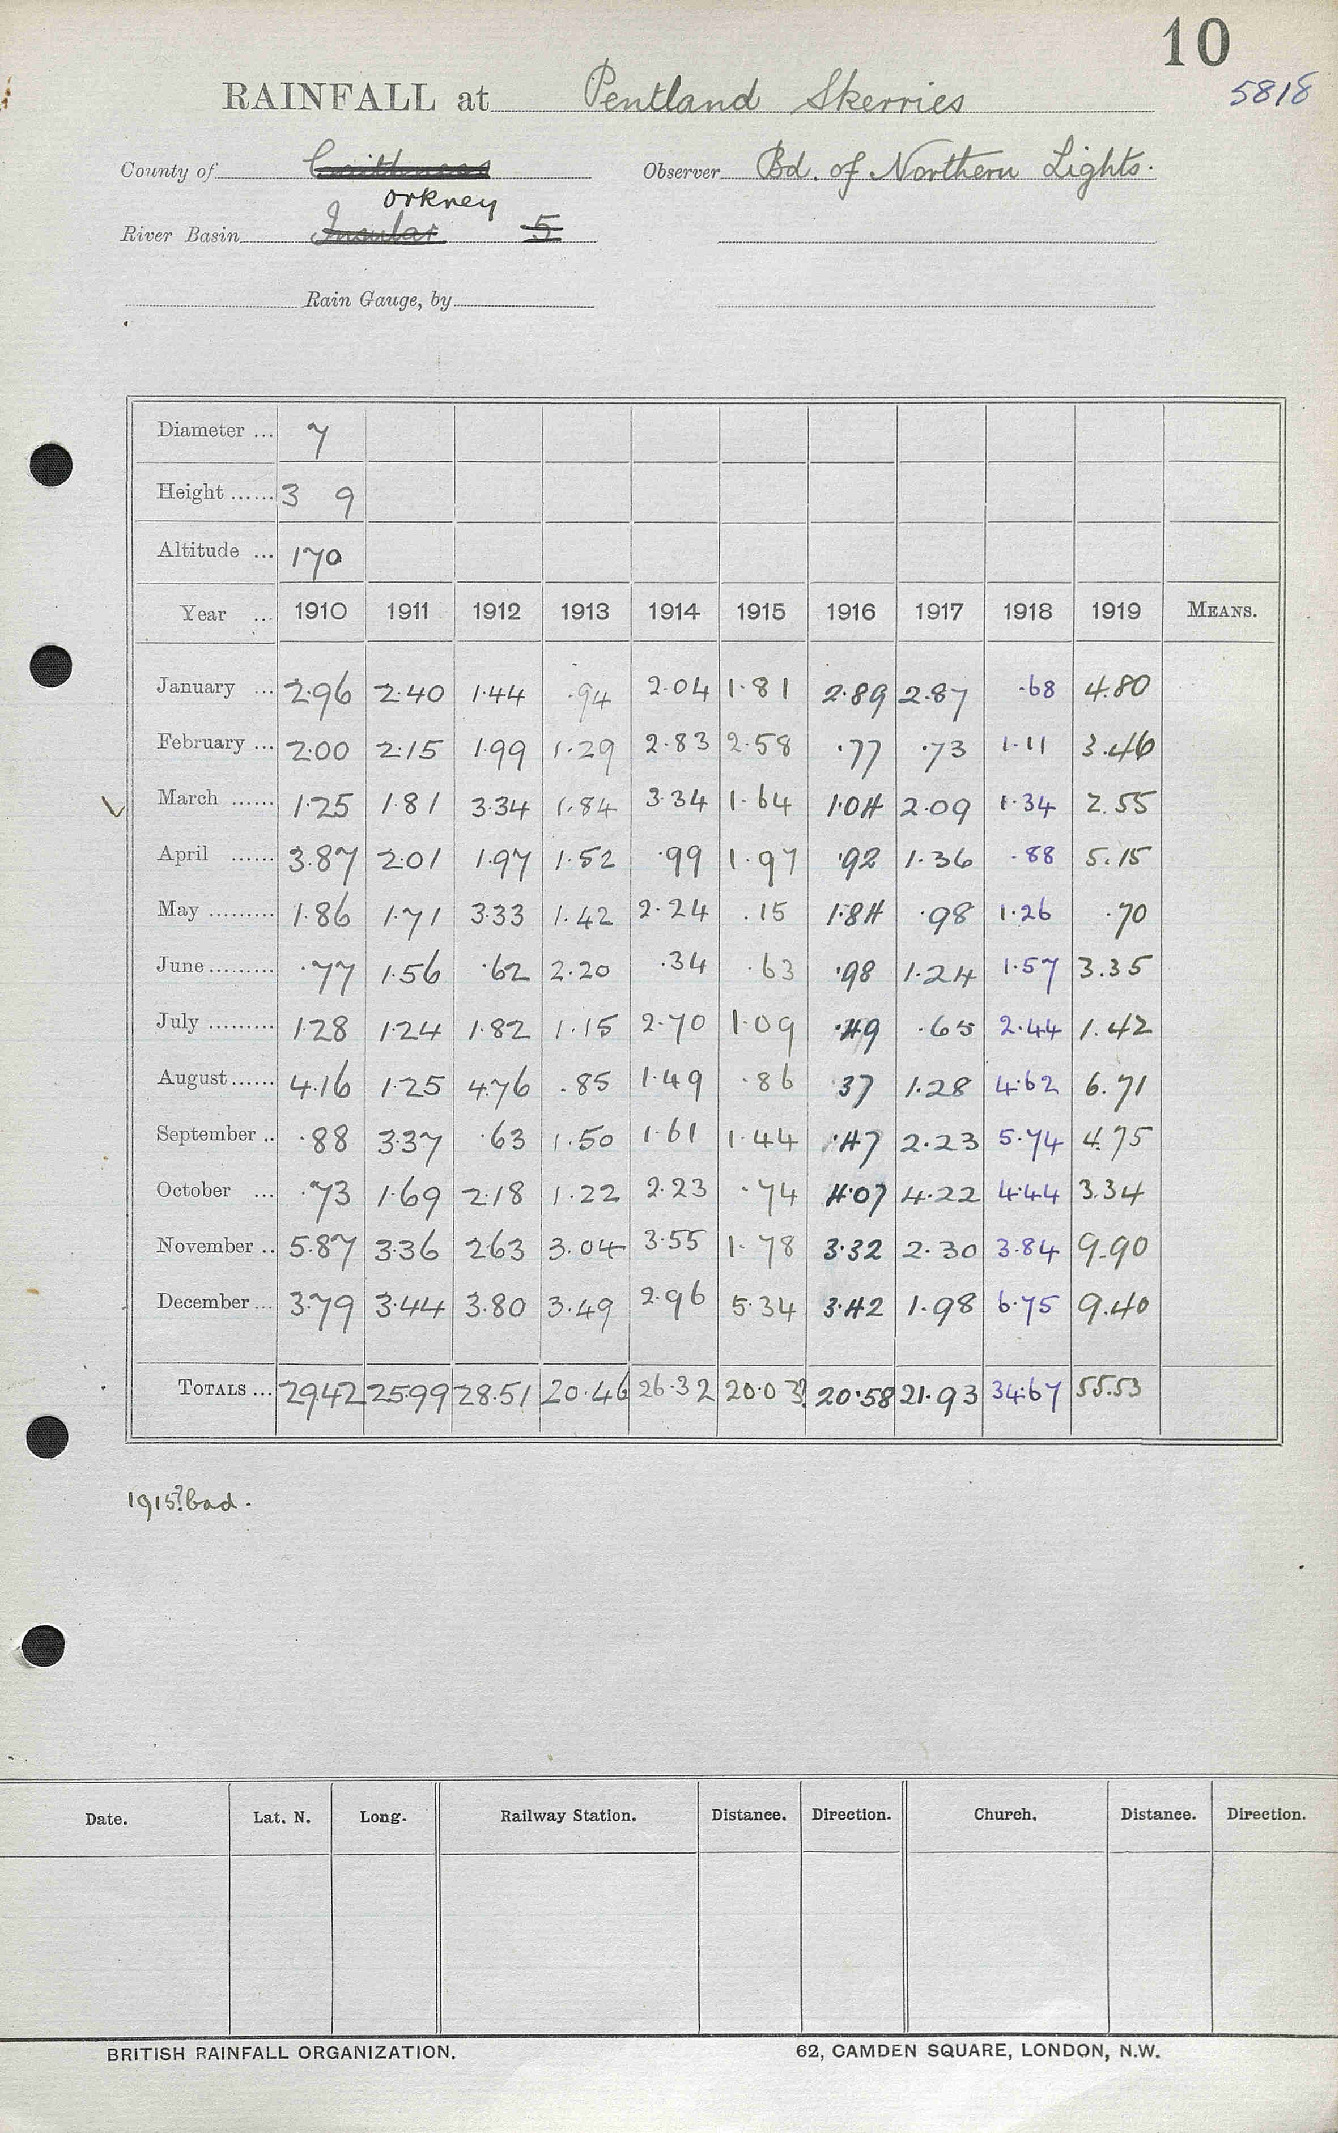 10
RAINFALL at Pentland Skerries 5818
County of Caithness Observer Bd. of Northern Lights.
Orkney
River Basin Insular 5
Rain Gauge, by
Diameter ... 7
Height ...... 3 9
Altitude ... 170
Year ... 1910 1911 1912 1913 1914 1915 1916 1917 1918 1919 MEANS.
January ... 2.96 2.40 1.44 .94 2.04 1.81 2.89 2.87 .68 4.80
February ... 2.00 2.15 1.99 1.29 2.83 2.58 .77 .73 1.11 3.46
March ...... 1.25 1.81 3.34 1.84 3.34 1.64 1.04 2.09 1.34 2.55
April ...... 3.87 2.01 1.97 1.52 .99 1.97 .92 1.36 .88 5.15
May ......... 1.86 1.71 3.33 1.42 2.24 .15 1.84 .98 1.26 .70
June ......... .77 1.56 .62 2.20 .34 .63 .98 1.24 1.57 3.35
July ......... 1.28 1.24 1.82 1.15 2.70 1.09 .49 .65 2.44 1.42
August ...... 4.16 1.25 4.76 .85 1.49 .86 .37 1.28 4.62 6.71
September .. .88 3.37 .63 1.50 1.61 1.44 .47 2.23 5.74 4.75
October ... .73 1.69 2.18 1.22 2.23 .74 4.07 4.22 4.44 3.34
November .. 5.87 3.36 2.63 3.04 3.55 1.78 3.32 2.30 3.84 9.90
December ... 3.79 3.44 3.80 3.49 2.96 5.34 3.42 1.98 6.75 9.40
TOTALS ... 29.42 25.99 28.51 20.46 26.32 20.03? 20.58 21.93 34.67 55.53
1915? bad.
Date. Lat. N. Long. Railway Station. Distance. Direction. Church. Distance. Direction.
BRITISH RAINFALL ORGANIZATION. 62, CAMDEN SQUARE, LONDON, N.W.